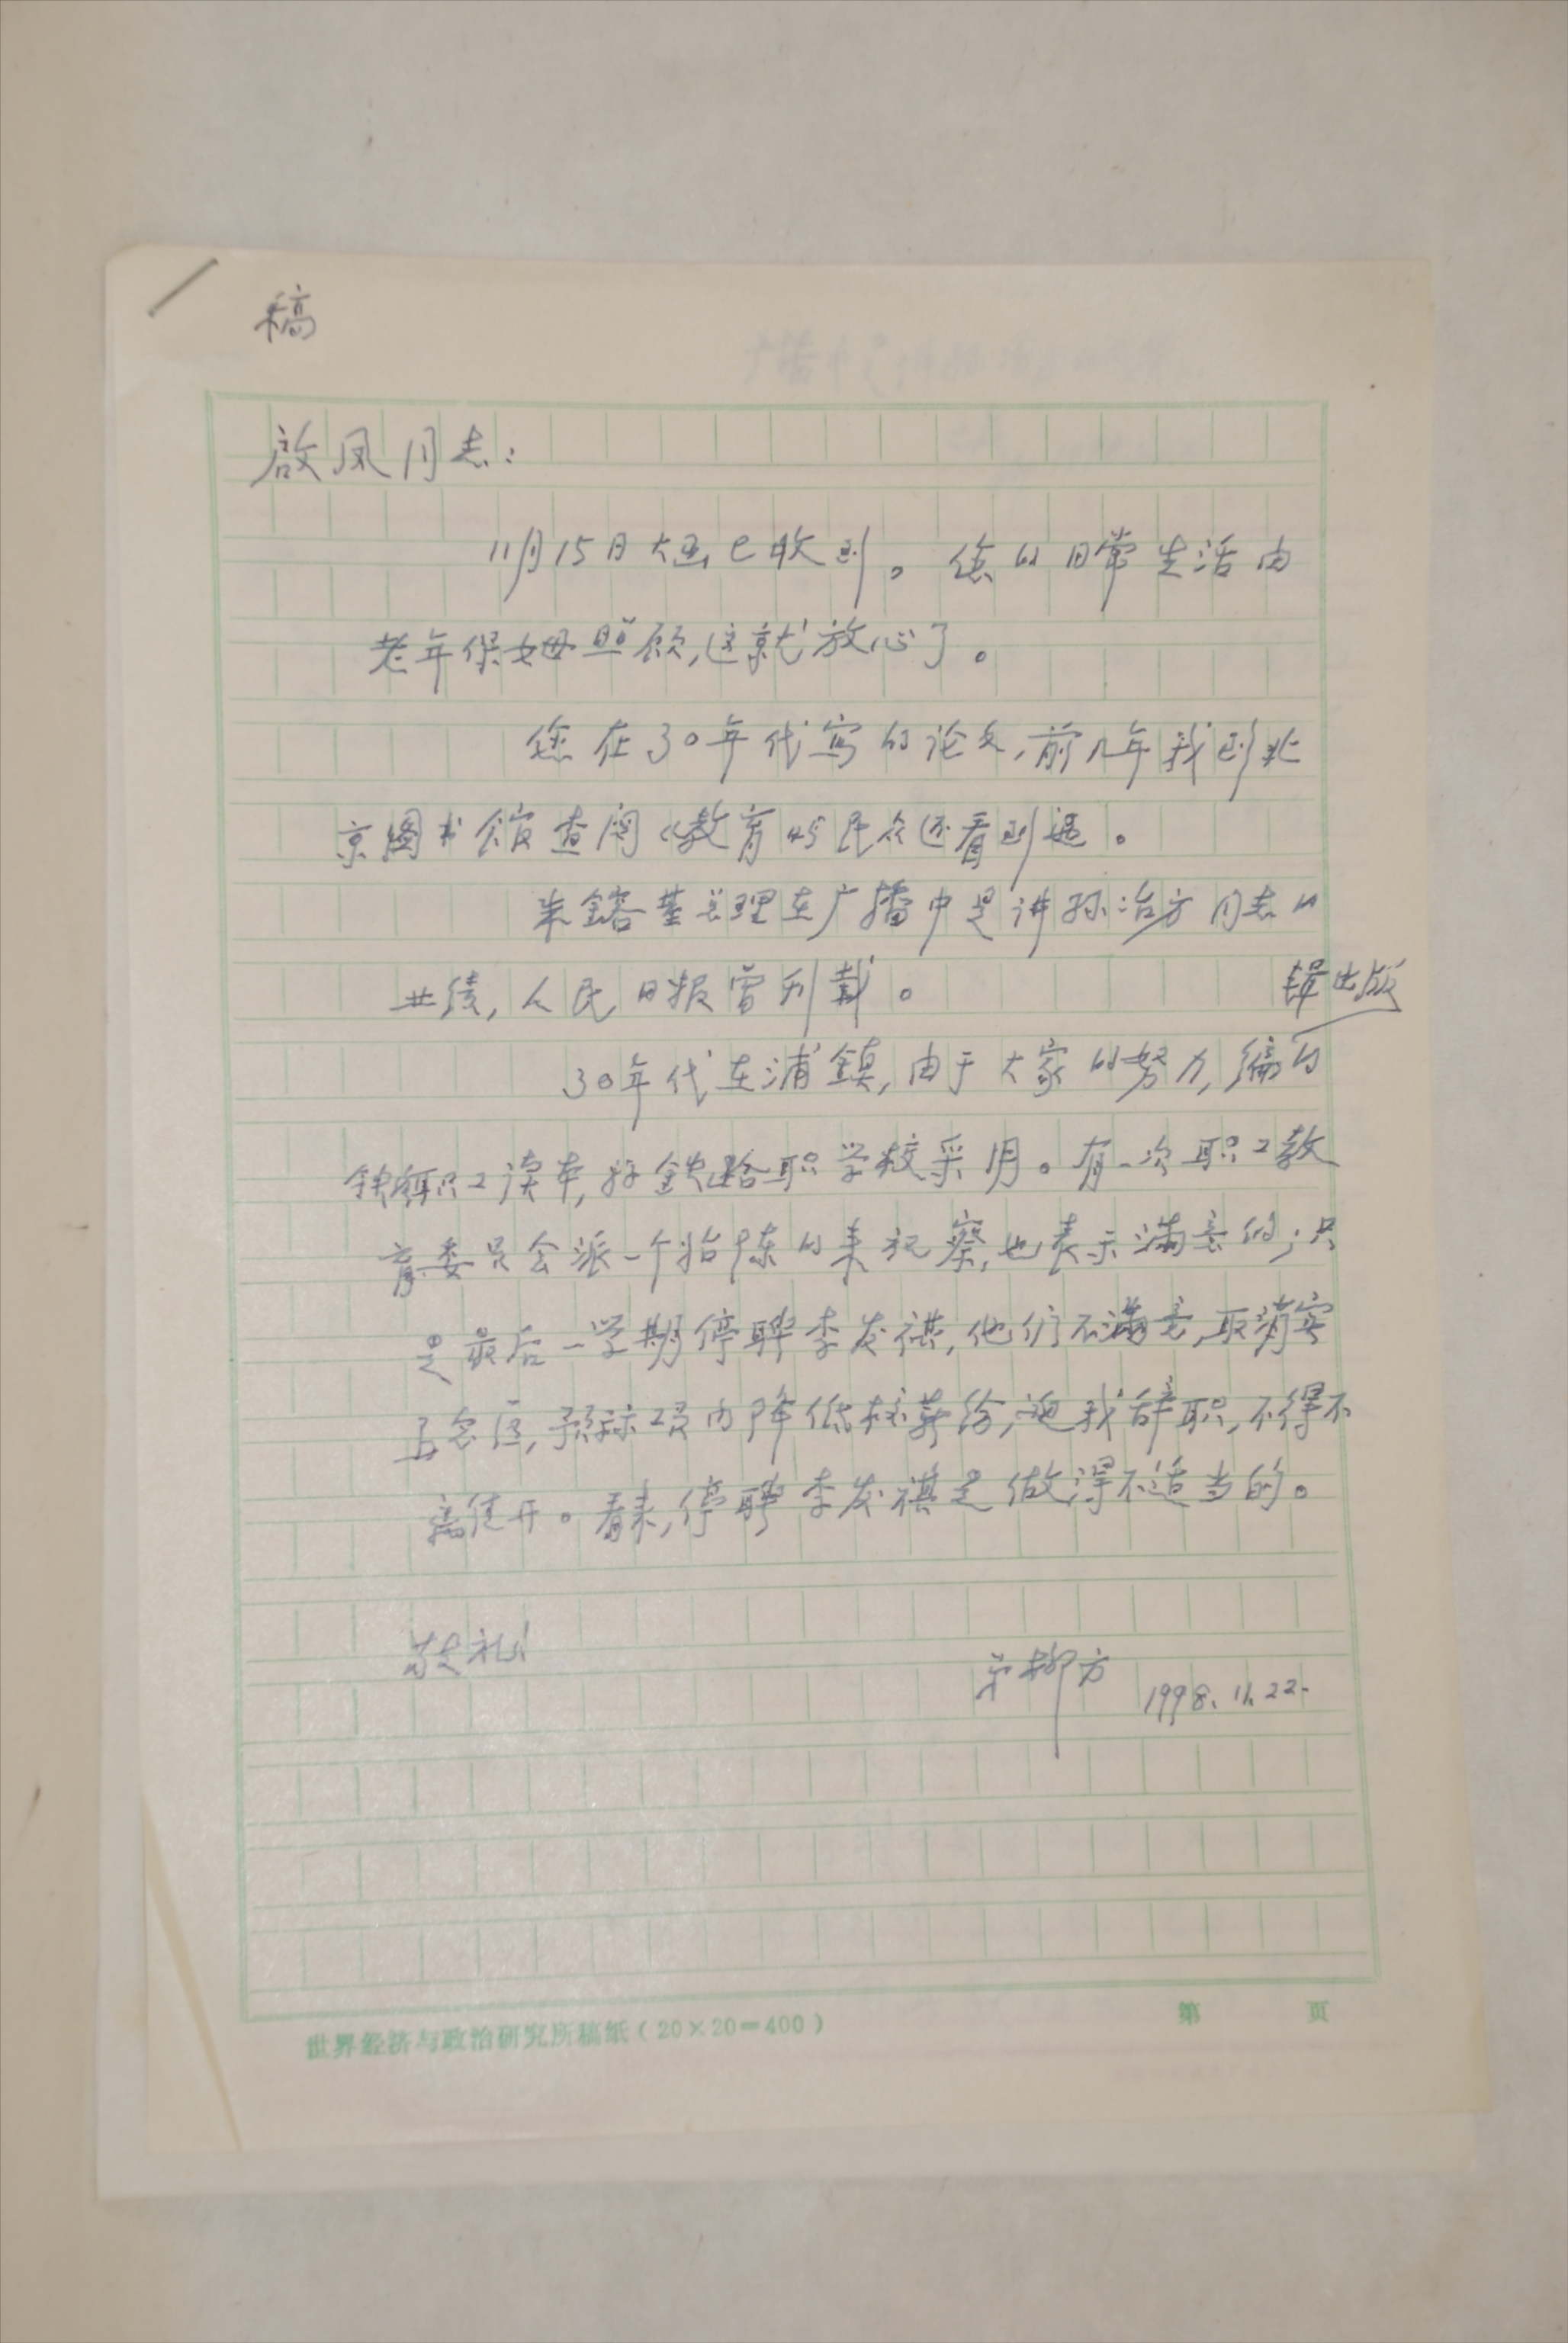 稿
启凤同志:
11月15日大函已收到。您的日常生活由
老年保姆照顾,这就放心了。
您在30年代写的论文,前几年我到北
京图书馆查阅《教育与民众还看到过。
朱镕基总理在广播中是讲孙冶方同志的
业绩,人民日报曾刊载。
辑出版
30年代在浦镇,由于大家的努力,编的
铁路职工读本,将铁路职学校采用。有一次职工教
育委员会派一个姓陈的来视察,也表示满意的;只
是最后一学期停聘李发祺,他们不满意,取消实
预 项内降低校薪给,迫我辞职,不得不
离 开。看来,停聘李发祺是做得不适当的。
敬礼!
柳方 1998.11.22.
世界经济与政治研究所稿纸(20×20=400)
第 页